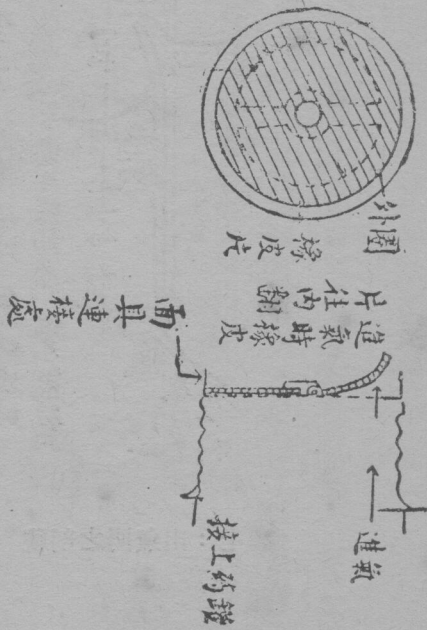 外圍
橡皮片
進氣時橡皮
片往內翻
面具連接處
進氣
接上药鑵